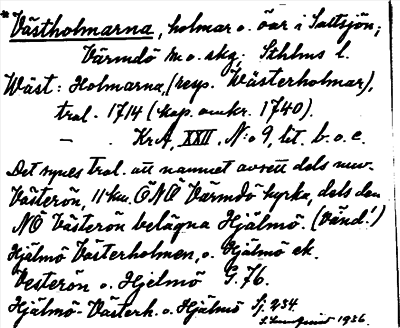 * Västholmarna, holmar o. öar i Saltsjön;
Värmdö sn o. skg; Sthlms l.
Wäst: Holmarna, (resp. Wästerholmar),
trol. 1714 (kop. omkr. 1740).
— . KrA, XXII, N:o 9, lit. b. o. c.
Det synes trol. att namnet avsett dels nuv.
Västerön, 11 km. ÖNÖ Värmdö kyrka, dels den
NÖ Västerön belägna Hjälmö. (Vänd!)
Hjälmö Västerholmen, o. Hjälmö ek.
Vesterön o. Hjelmö G. 76.
Hjälmö-Västerh. o. Hjälmö Sj. 234.
1936.